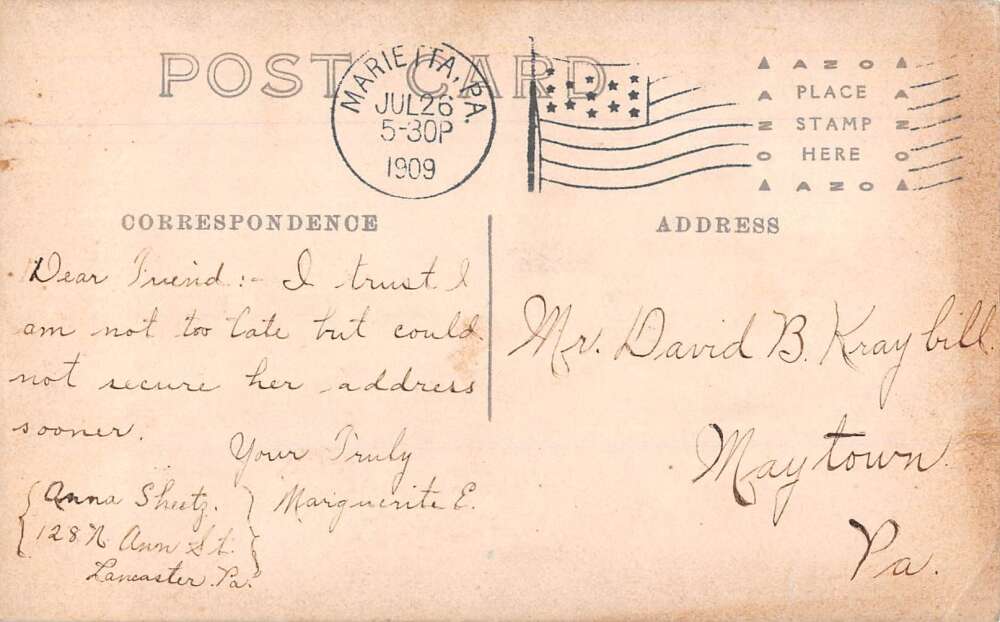 POST CARD
MARIETTA, PA.
JUL 26
5-30P
1909
AZO
PLACE
STAMP
HERE
AZO
AZO
AZO
CORRESPONDENCE
Dear Friend :- I trust I
am not too late but could
not secure her address
sooner.
Your Truly
Marguerite E.
Anna Sheetz.
128 N Ann St.
Lancaster. Pa.
ADDRESS
Mr. David B. Kraybill.
Maytown
Pa.